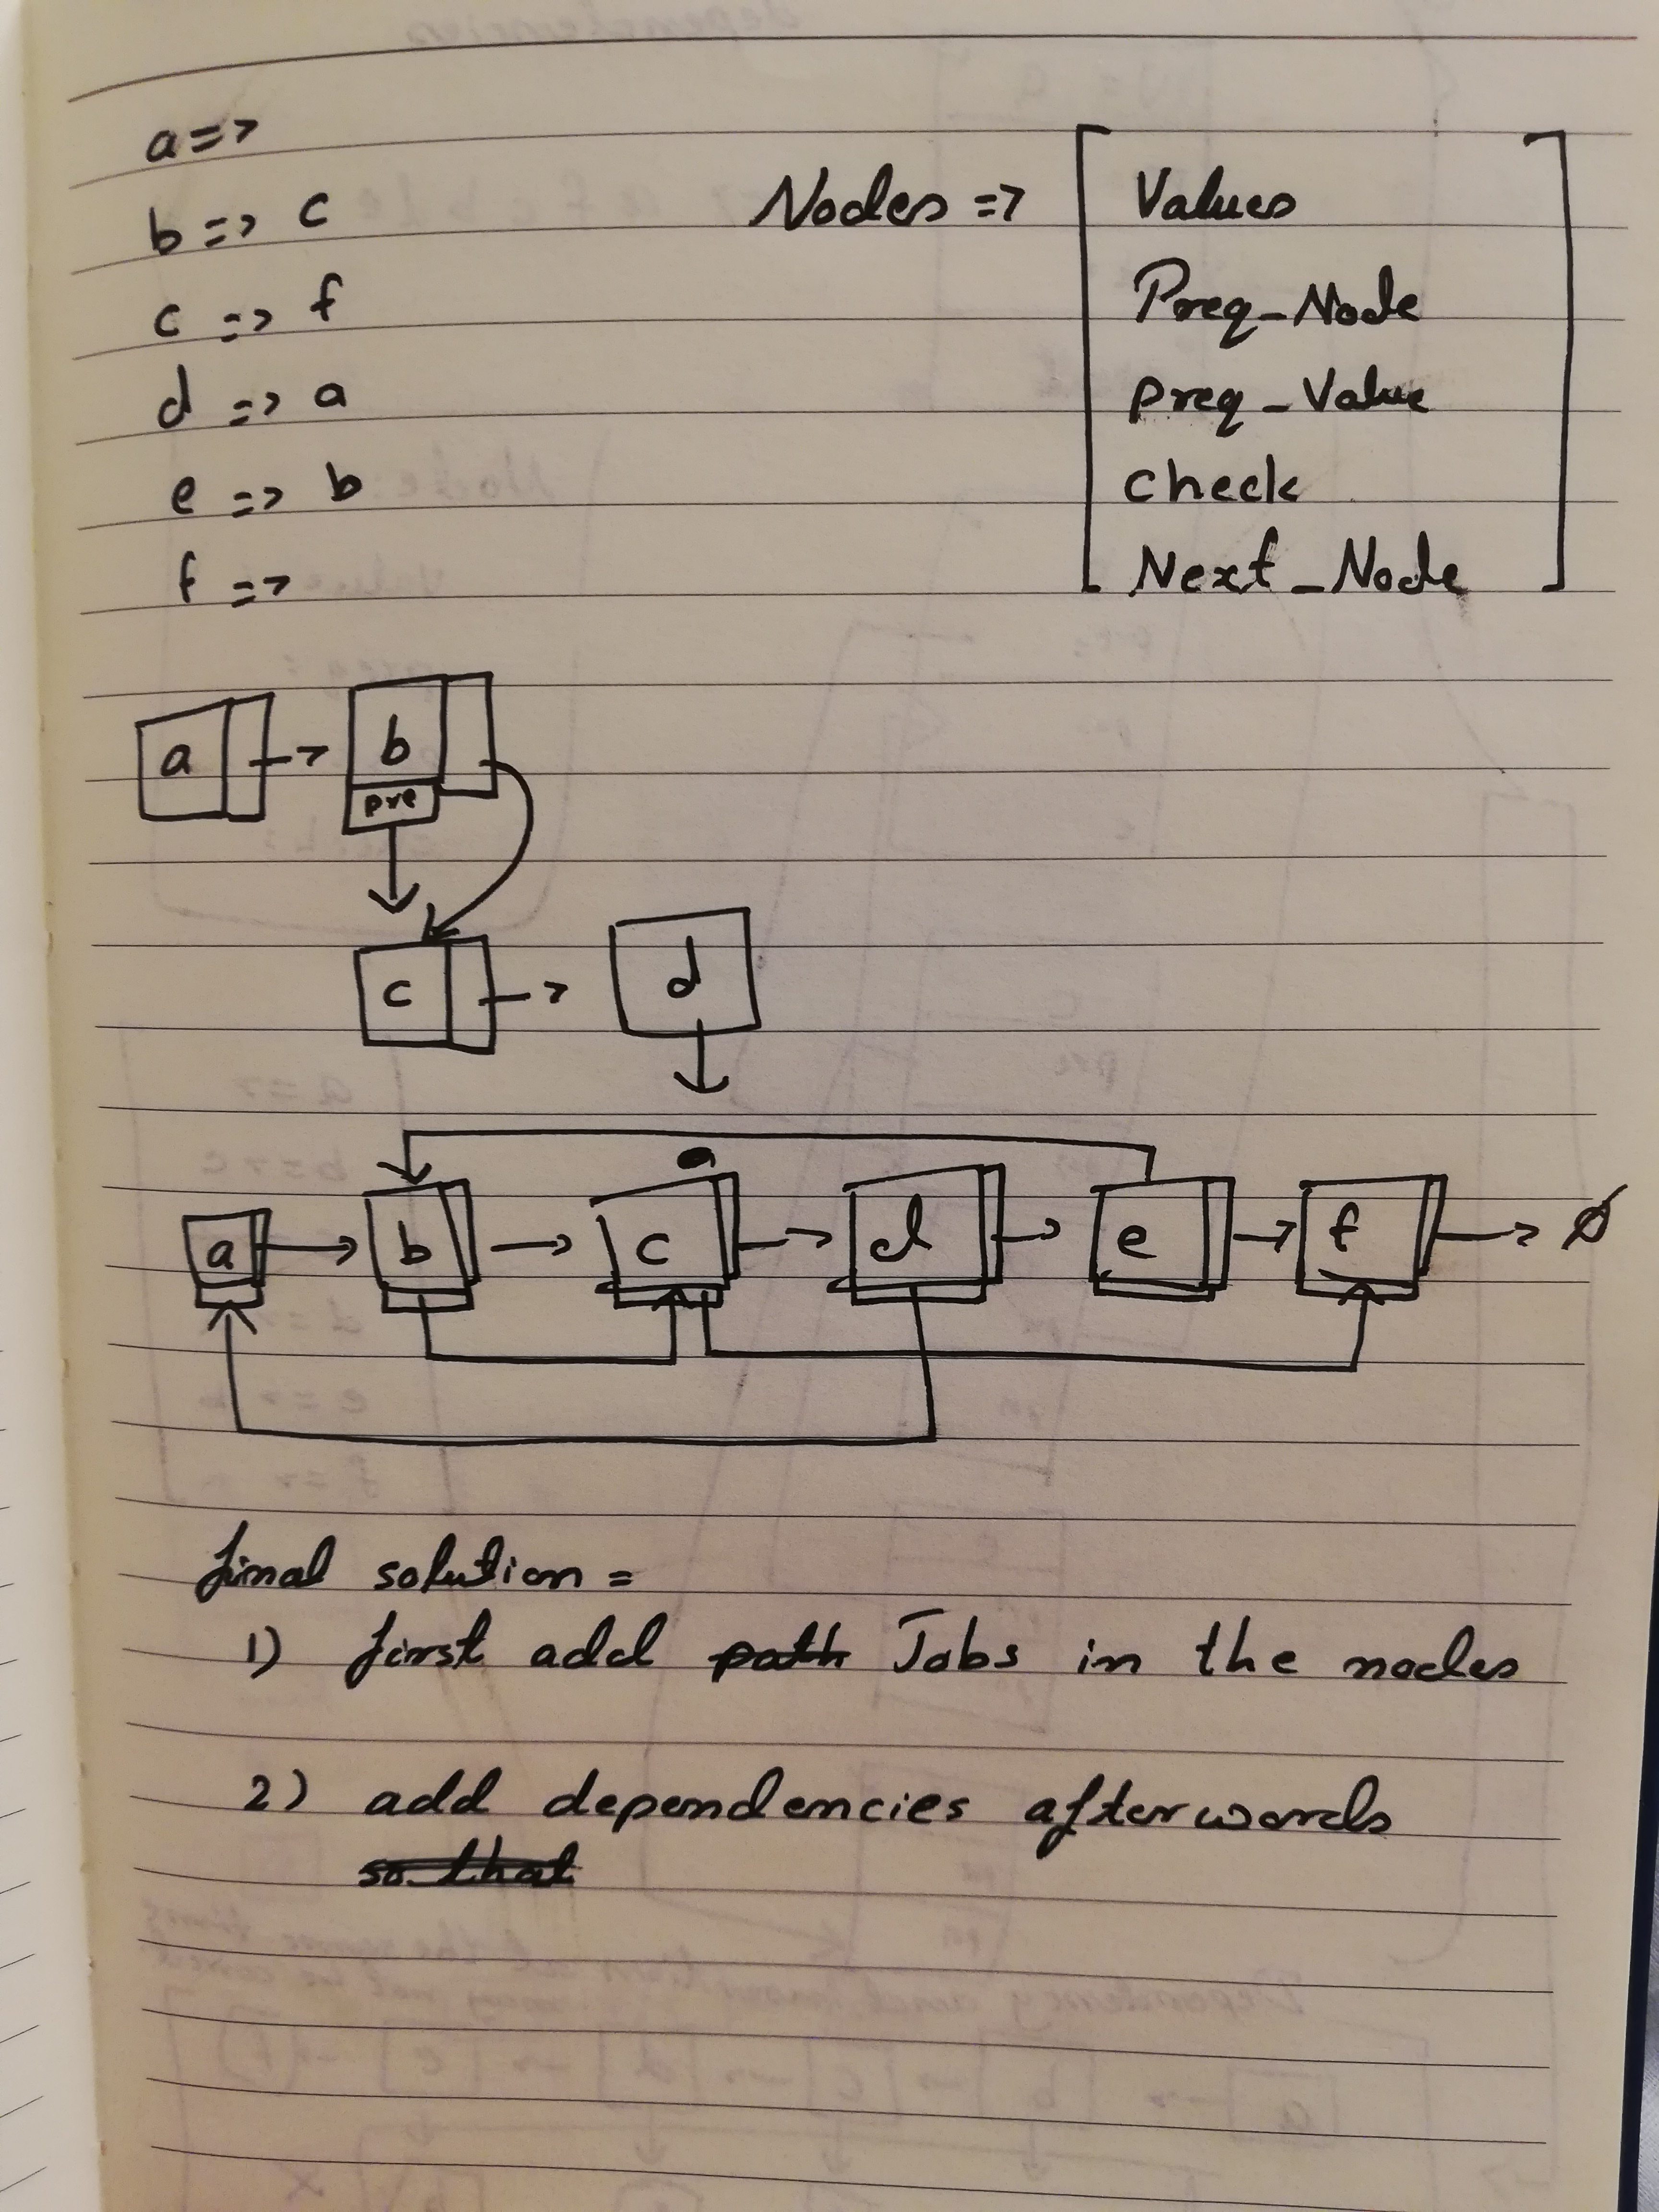 a =>
b => c
c => f
d => a
e => b
f =>
Nodes =>
Values
Preq_Node
Preq_Value
check
Next_Node
a
b
pre
c
d
a b c d e f ∅
final solution =
1) first add path Jobs in the nodes
2) add dependencies afterwords
so that